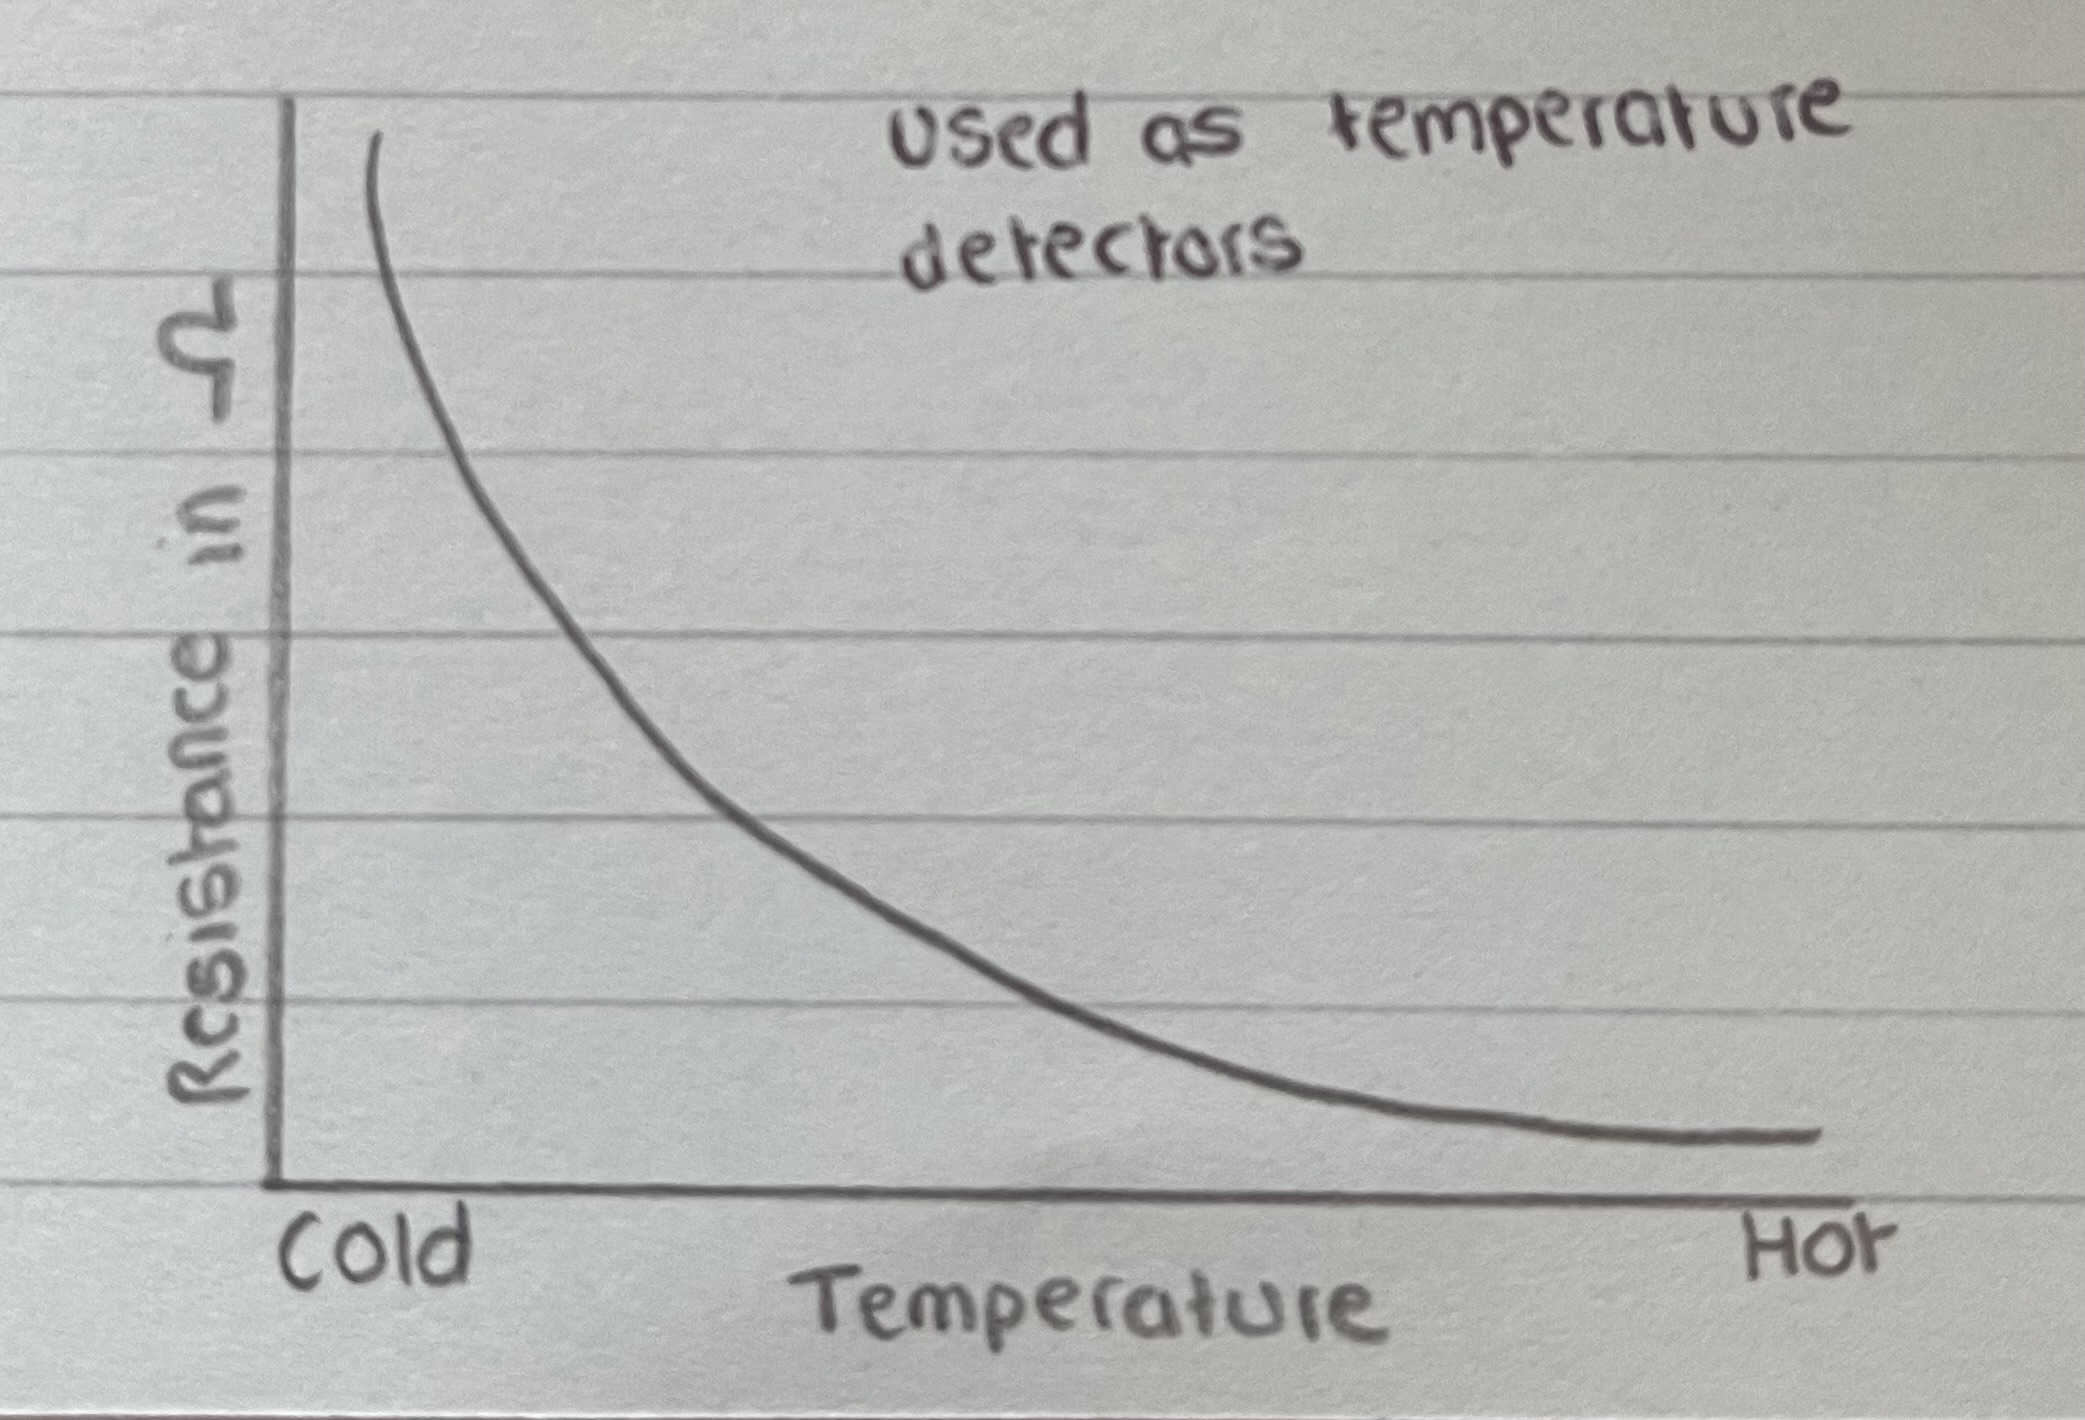 used as temperature
detectors
Resistance in Ω
Cold
Hot
Temperature